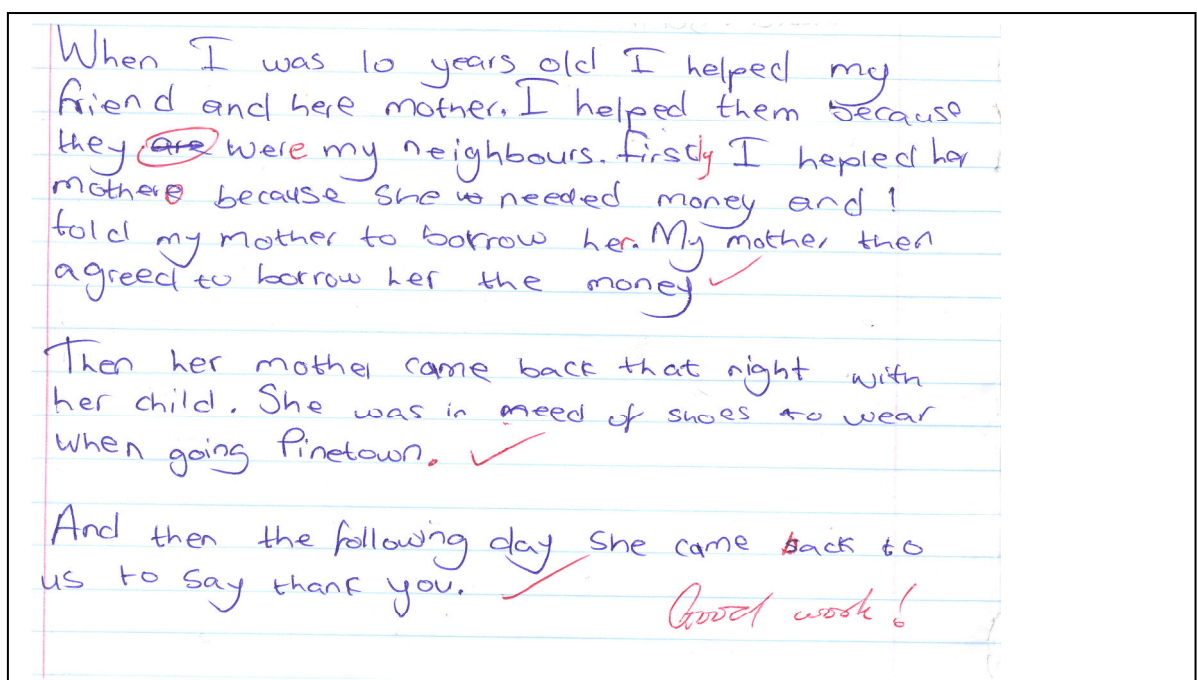 When I was 10 years old I helped my
friend and here mother. I helped them because
they are were my neighbours. firstly I hepled her
mothere because she needed money and I
told my mother to borrow her. My mother then
agreed to borrow her the money
Then her mother came back that night with
her child. She was in need of shoes to wear
when going Pinetown.
And then the following day she came back to
us to say thank you.
Good work!